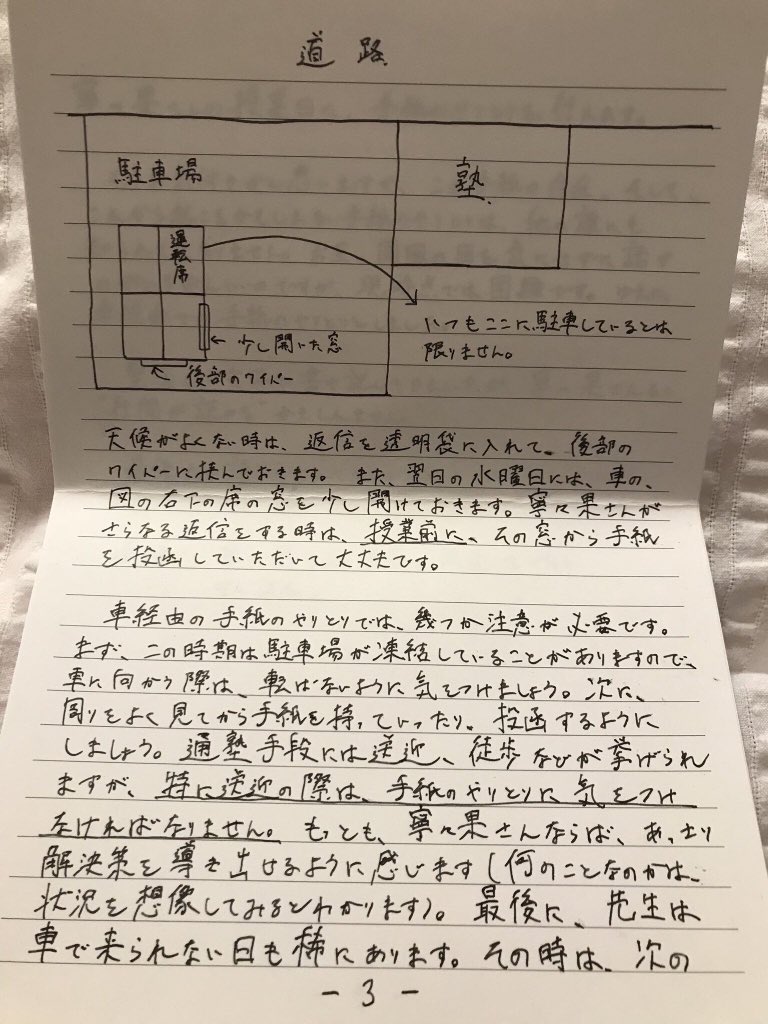 道路
駐車場
塾
運転席
いつもここに駐車しているとは
限りません。
←少し開いた窓
←後部のワイパー
天候がよくない時は、返信を透明袋に入れて、後部の
ワイパーに挟んでおきます。また、翌日の水曜日には、車の、
図の右下の席の窓を少し開けておきます。寧々果さんが
さらなる返信をする時は、授業前に、その窓から手紙
を投函していただいて大丈夫です。
車経由の手紙のやりとりでは、幾つか注意が必要です。
まず、この時期は駐車場が凍結していることがありますので、
車に向かう際は、転ばないように気をつけましょう。次に、
周りをよく見てから手紙を持っていったり、投函するように
しましょう。通塾手段には送迎、徒歩などが挙げられ
ますが、特に送迎の際は、手紙のやりとりに気をつけ
なければなりません。もっとも、寧々果さんならば、あっさり
解決策を導き出せるように感じます(何のことなのかは、
状況を想像してみるとわかります)。最後に、先生は
車で来られない日も稀にあります。その時は、次の
- 3 -